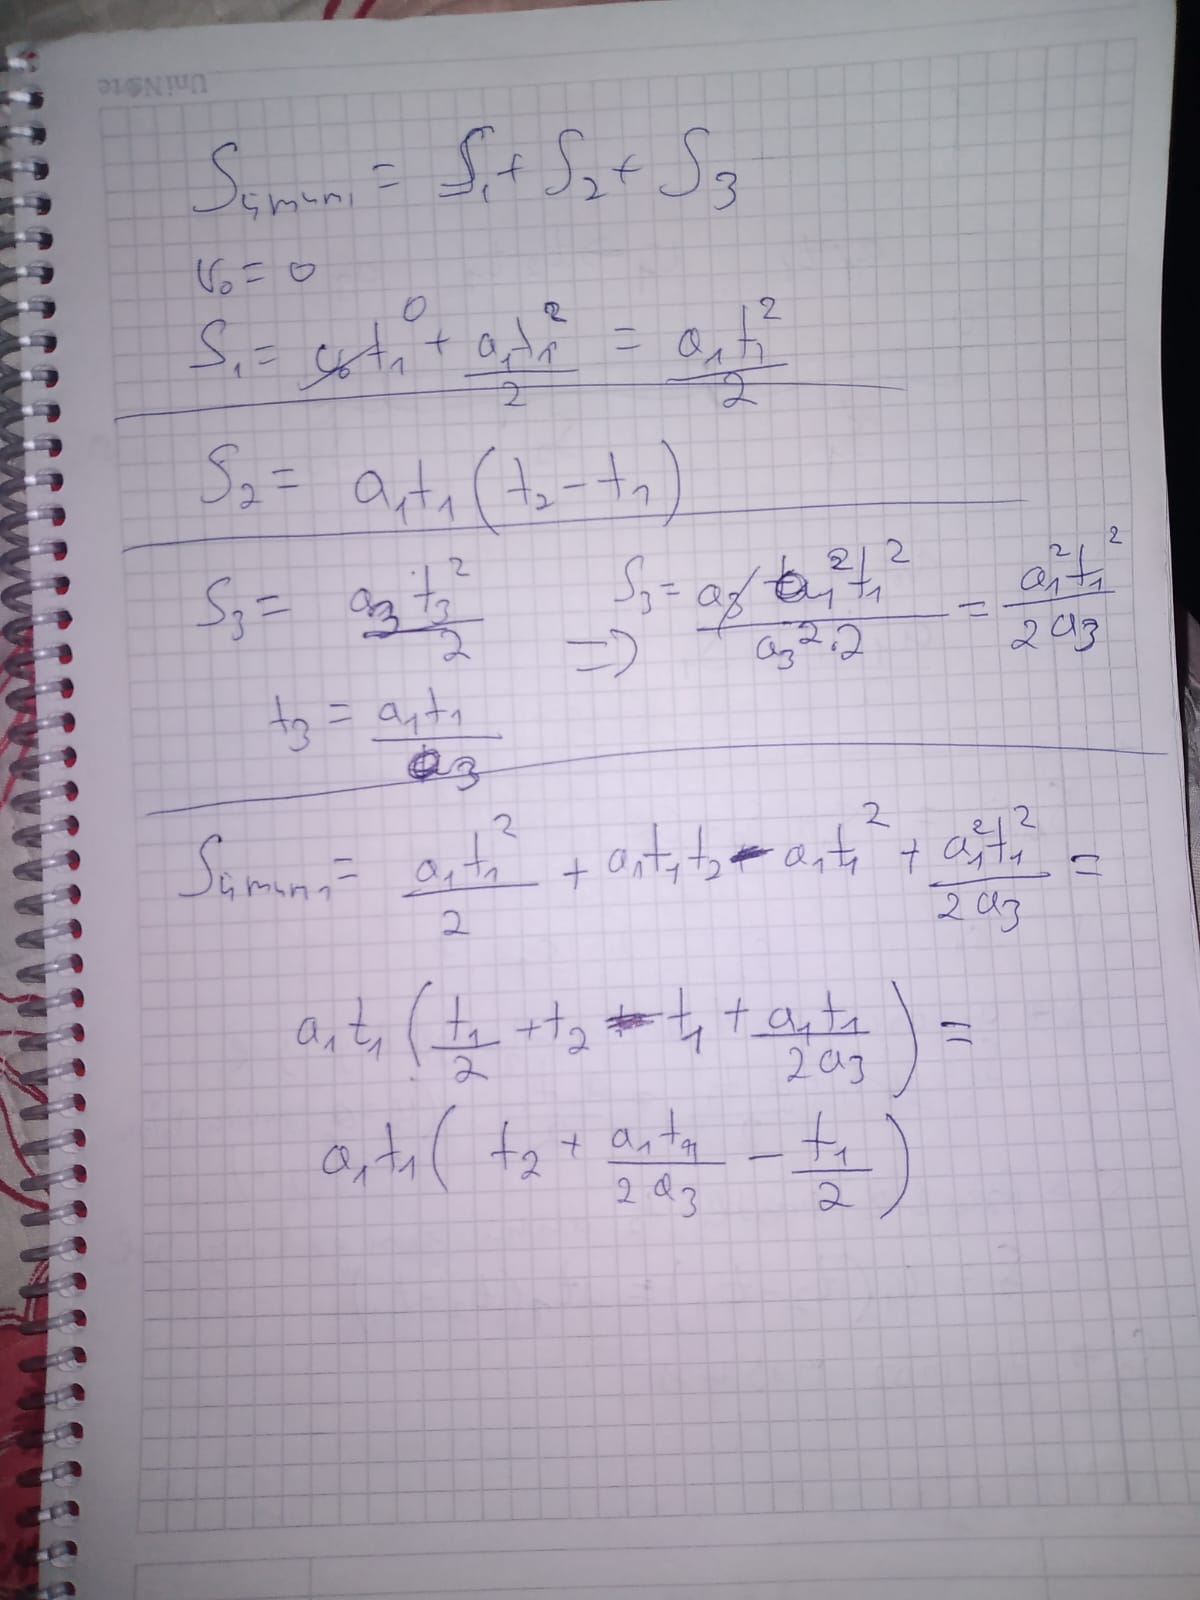 UniNote
Sümumi = S₁ + S₂ + S₃
v₀ = 0
S₁ = v₀t₁⁰ + a₁t₁²/2 = a₁t₁²/2
S₂ = a₁t₁(t₂ - t₁)
S₃ = a₃t₃²/2 => S₃ = a₃ a₁²t₁²/a₃²·2 = a₁²t₁²/2a₃
t₃ = a₁t₁/a₃
Sümumi = a₁t₁²/2 + a₁t₁t₂ - a₁t₁² + a₁²t₁²/2a₃ =
a₁t₁(t₁/2 + t₂ - t₁ + a₁t₁/2a₃) =
a₁t₁(t₂ + a₁t₁/2a₃ - t₁/2)